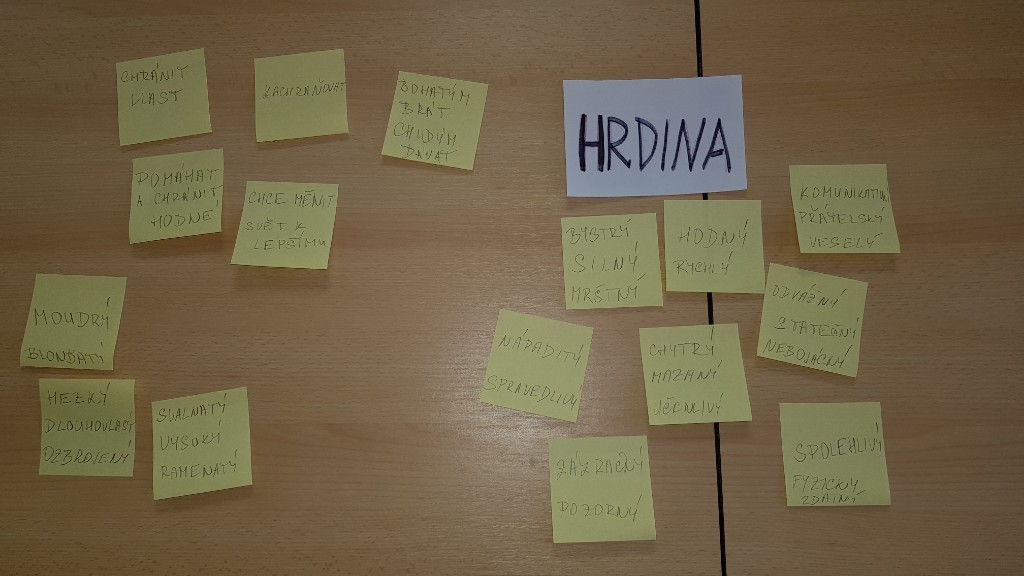 HRDINA
CHRÁNIT
VLAST
ZACHRAŇOVAT
BOHATÝM
BRÁT
CHUDÝM
DÁVAT
POMÁHAT
A CHRÁNIT
HODNÉ
CHCE MĚNIT
SVĚT K
LEPŠÍMU
MOUDRÝ
BLONĎATÝ
HEZKÝ
DLOUHOVLASÝ
OZBROJENÝ
SVALNATÝ
VYSOKÝ
RAMENATÝ
BYSTRÝ
SILNÝ
MRŠTNÝ
HODNÝ
RYCHLÝ
KOMUNIKATIVNÍ
PŘÁTELSKÝ
VESELÝ
ODVÁŽNÝ
STATEČNÝ
NEBOJÁCNÝ
NÁPADITÝ
SPRAVEDLIVÝ
CHYTRÝ
MAZANÝ
ZÁZRAČNÝ
POZORNÝ
SPOLEHLIVÝ
FYZICKY
ZDATNÝ